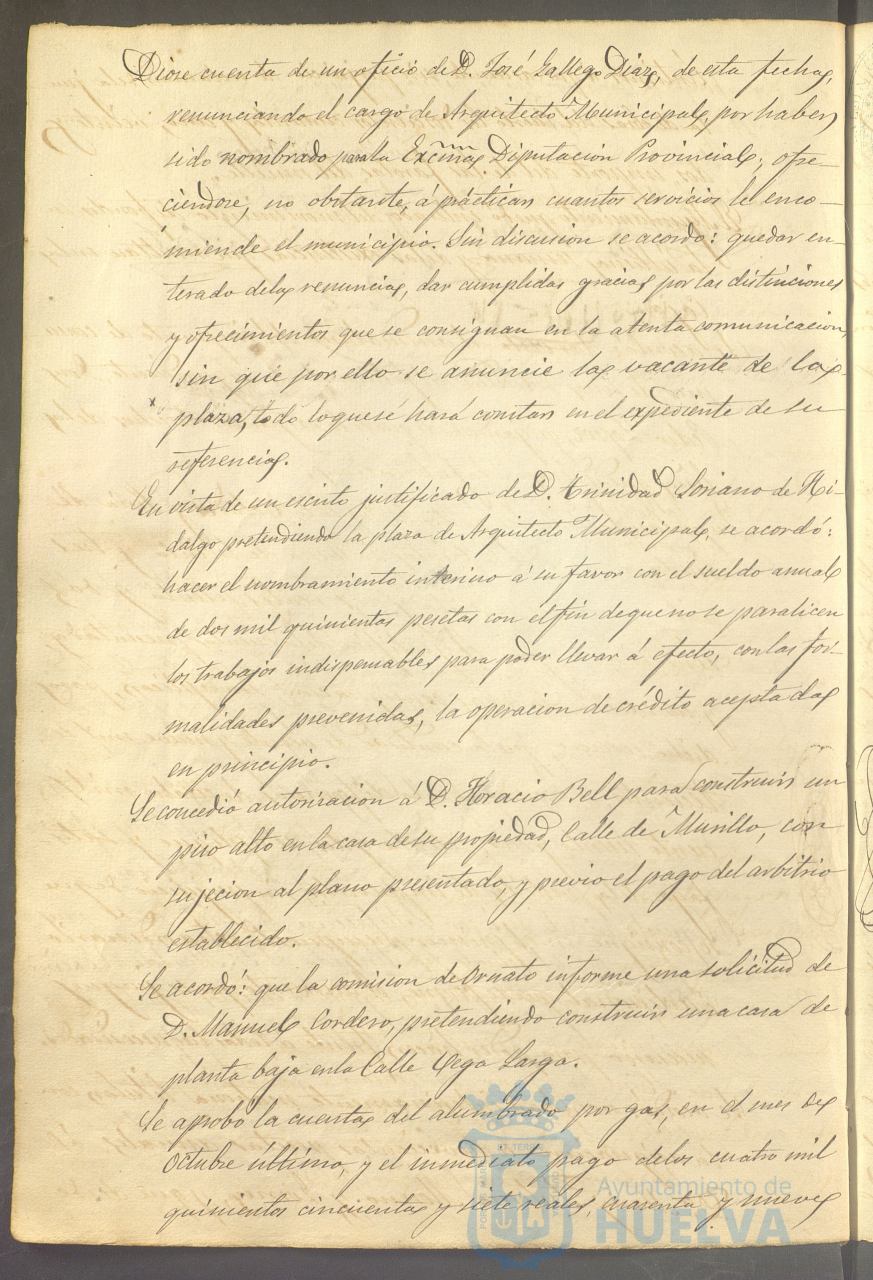 Diose cuenta de un oficio de D. José Gallego Diaz, de esta fecha,
renunciando el cargo de Arquitecto Municipal, por haber
sido nombrado para la Excma Diputacion Provincial; ofre-
ciendose, no obstante, á practicar cuantos servicios le enco-
miende el municipio. Sin discusion se acordo: quedar en-
terado dela renuncia, dar cumplidas gracias por las distinciones
y ofrecimientos que se consignan en la atenta comunicacion,
sin que por ello se anuncie la vacante de la
plaza, todo lo que se hará constar en el expediente de su
referencia.
En vista de un escrito justificado de D. Trinidad Soriano de Hi-
dalgo pretendiendo la plaza de Arquitecto Municipal, se acordó:
hacer el nombramiento interino á su favor con el sueldo anual
de dos mil quinientas pesetas con el fin de que no se paralicen
los trabajos indispensables para poder llevar á efecto, con las for-
malidades prevenidas, la operacion de crédito aceptada
en principio.
Se concedió autorizacion á D. Horacio Bell para construir un
piso alto en la casa de su propiedad, Calle de Murillo, con
sujecion al plano presentado, y previo el pago del arbitrio
establecido.
Se acordó: que la comision de Ornato informe una solicitud de
D. Manuel Cordero, pretendiendo construir una casa de
planta baja en la Calle Vega Larga.
Se aprobó la cuenta del alumbrado por gas, en el mes de
Octubre último, y el inmediato pago delos cuatro mil
quinientos cincuenta y siete reales, cuarenta y nueve
Ayuntamiento de
HUELVA